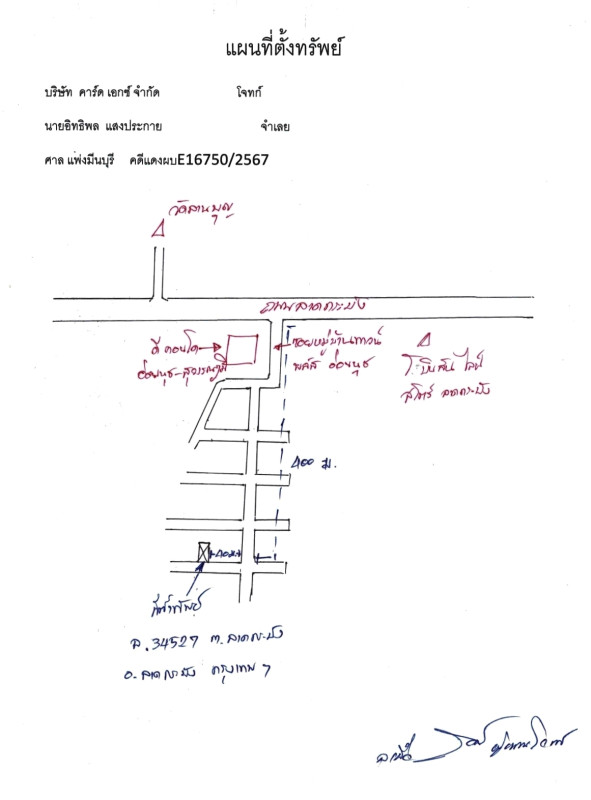 แผนที่ตั้งทรัพย์
บริษัท คาร์ด เอกซ์ จำกัด โจทก์
นายอิทธิพล แสงประกาย จำเลย
ศาล แพ่งมีนบุรี คดีแดงผบE16750/2567
วัดลานบุญ
ถนนลาดกระบัง
ดี คอนโด
อ่อนนุช-สุวรรณภูมิ
ซอยหมู่บ้านทาวน์
พลัส อ่อนนุช
โรบินสัน ไลฟ์
สไตล์ ลาดกระบัง
400 ม.
ที่ตั้งทรัพย์
ฉ.34527 ต.ลาดกระบัง
อ.ลาดกระบัง กรุงเทพฯ
ลงชื่อ